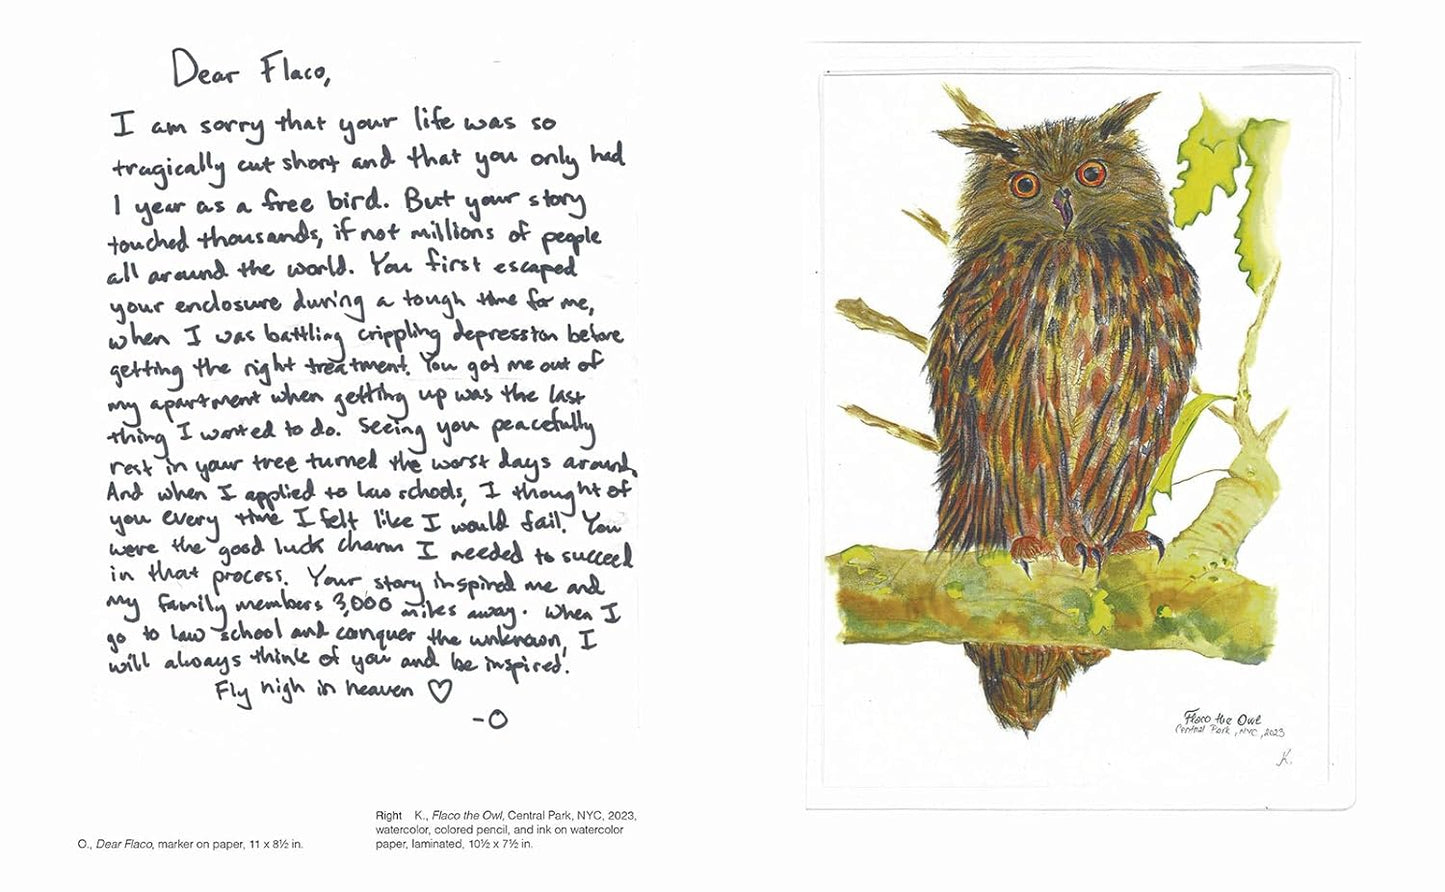 Dear Flaco,
I am sorry that your life was so
tragically cut short and that you only had
1 year as a free bird. But your story
touched thousands, if not millions of people
all around the world. You first escaped
your enclosure during a tough time for me,
when I was battling crippling depression before
getting the right treatment. You got me out of
my apartment when getting up was the last
thing I wanted to do. Seeing you peacefully
rest in your tree turned the worst days around.
And when I applied to law schools, I thought of
you every time I felt like I would fail. You
were the good luck charm I needed to succeed
in that process. Your story inspired me and
my family members 3,000 miles away. When I
go to law school and conquer the unknown, I
will always think of you and be inspired.
Fly high in heaven ♡
-O
O., Dear Flaco, marker on paper, 11 x 8½ in.
Right K., Flaco the Owl, Central Park, NYC, 2023,
watercolor, colored pencil, and ink on watercolor
paper, laminated, 10½ x 7½ in.
Flaco the Owl
Central Park, NYC, 2023
K.